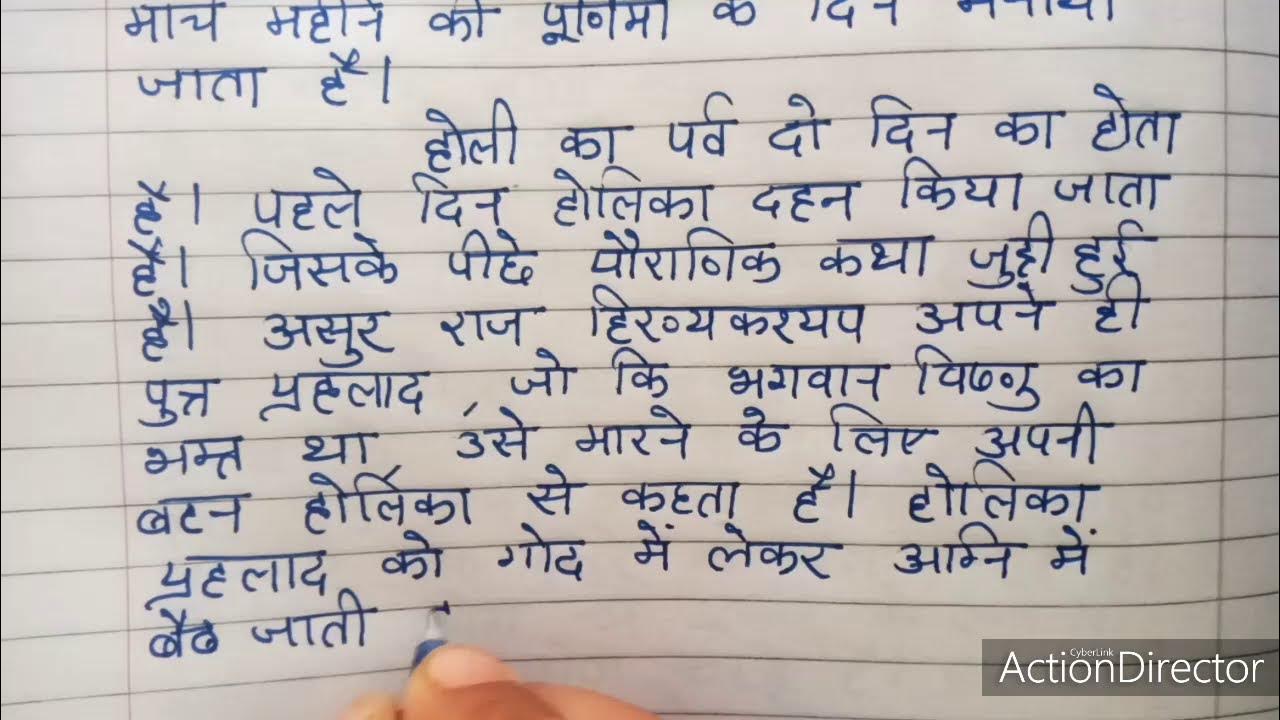 मार्च महीने की पूर्णिमा के दिन मनाया
जाता है।
होली का पर्व दो दिन का होता
है। पहले दिन होलिका दहन किया जाता
है। जिसके पीछे पौराणिक कथा जुड़ी हुई
है। असुर राज हिरण्यकश्यप अपने ही
पुत्र प्रहलाद, जो कि भगवान विष्णु का
भक्त था, उसे मारने के लिए अपनी
बहन होलिका से कहता है। होलिका
प्रहलाद को गोद में लेकर अग्नि में
बैठ जाती
CyberLink
ActionDirector